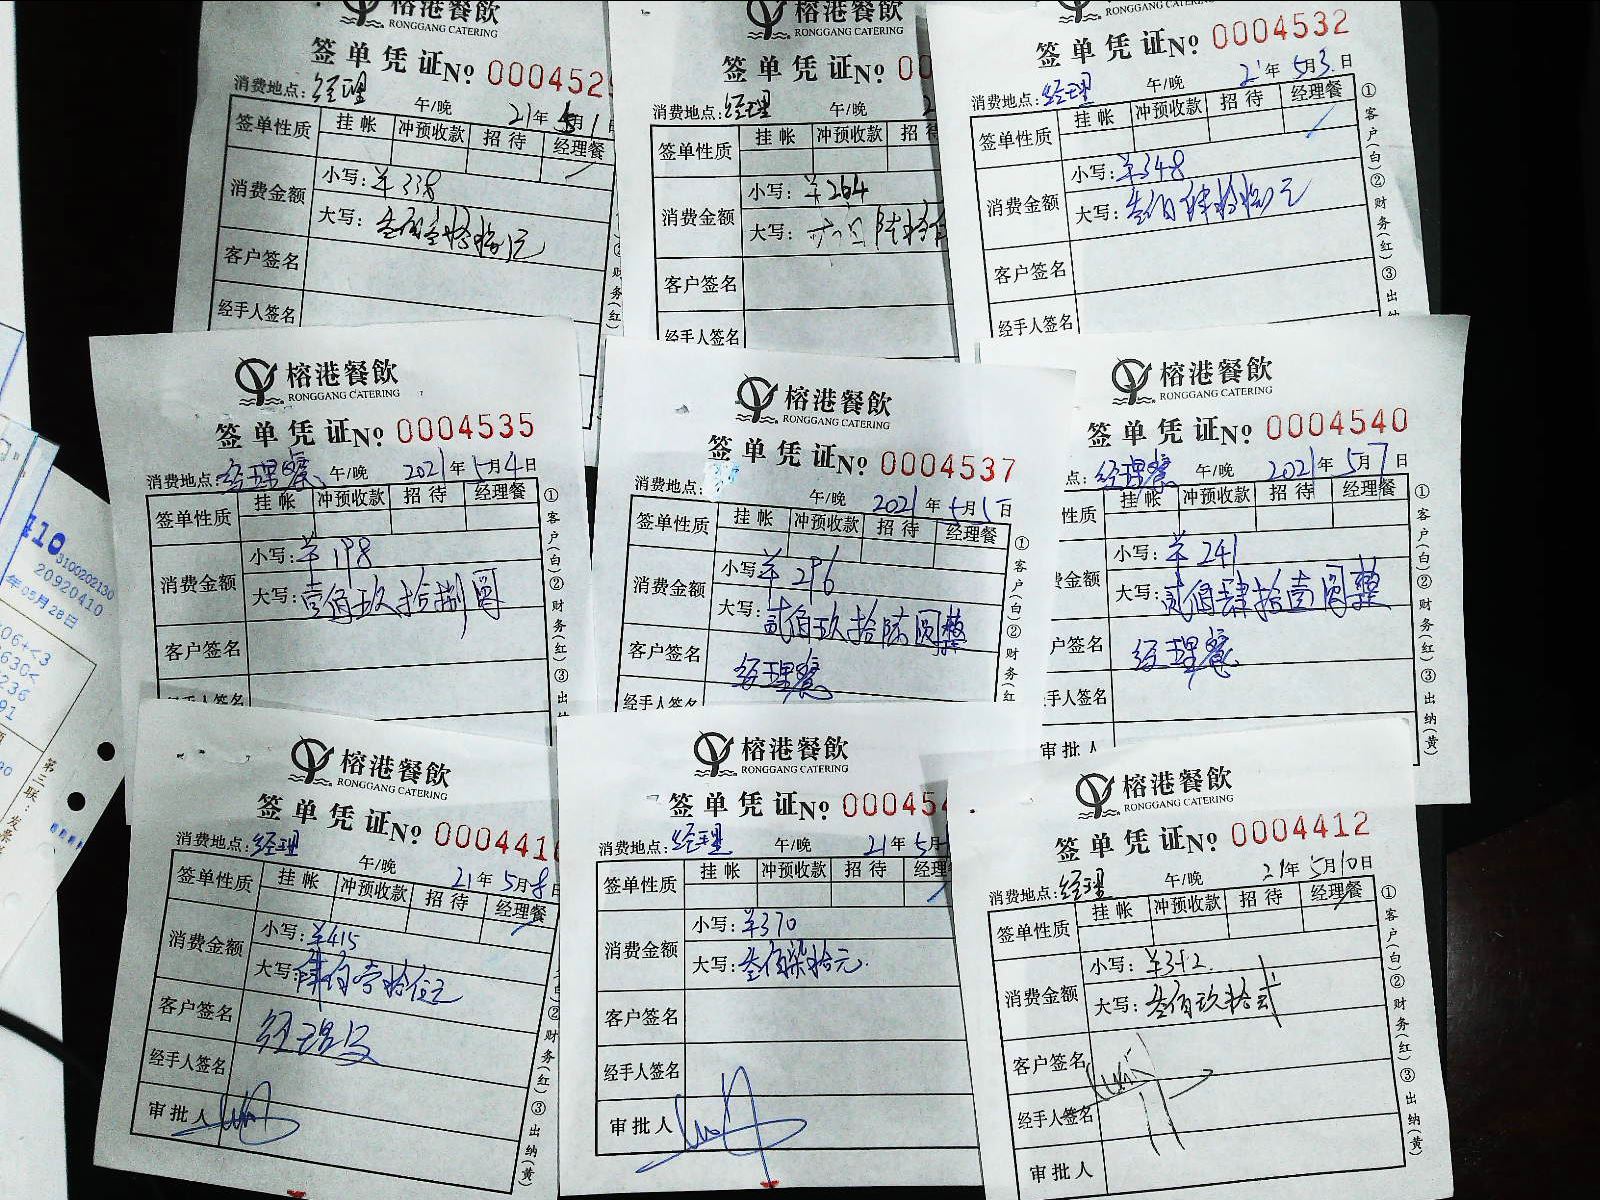 榕港餐飲
RONGGANG CATERING
签单凭证№ 0004529
消费地点：经理 午/晚 21年5月1
签单性质 挂帐 冲预收款 招待 经理餐
消费金额
小写：￥338
大写：叁佰叁拾捌元
客户签名
经手人签名
榕港餐飲
RONGGANG CATERING
签单凭证№ 00
消费地点：经理 午/晚
签单性质 挂帐 冲预收款 招待
消费金额
小写：￥264
大写：陆拾
客户签名
经手人签名
RONGGANG CATERING
签单凭证№ 0004532
消费地点：经理 午/晚 21年5月3日
签单性质 挂帐 冲预收款 招待 经理餐
消费金额
小写：￥348
大写：叁佰肆拾捌元
客户签名
经手人签名
①客户(白)②财务(红)③出纳
榕港餐飲
RONGGANG CATERING
签单凭证№ 0004535
消费地点：经理餐 午/晚 2021年5月4日
签单性质 挂帐 冲预收款 招待 经理餐
消费金额
小写：￥198
大写：壹佰玖拾捌圆
客户签名
经手人签名
①客户(白)②财务(红)③出纳
榕港餐飲
RONGGANG CATERING
签单凭证№ 0004537
消费地点： 午/晚 2021年5月5日
签单性质 挂帐 冲预收款 招待 经理餐
消费金额
小写￥296
大写：贰佰玖拾陆圆整
客户签名 经理餐
经手人签名
①客户(白)②财务(红
榕港餐飲
RONGGANG CATERING
签单凭证№ 0004540
点：经理餐 午/晚 2021年5月7日
性质 挂帐 冲预收款 招待 经理餐
费金额
小写：￥241
大写：贰佰肆拾壹圆整
户签名 经理餐
手人签名
审批人
①客户(白)②财务(红)③出纳(黄)
榕港餐飲
RONGGANG CATERING
签单凭证№ 000441
消费地点：经理 午/晚 21年5月8日
签单性质 挂帐 冲预收款 招待 经理餐
消费金额
小写：￥415
大写：肆佰壹拾伍元
客户签名
经手人签名
审批人
②财务(红)③出纳(黄)
榕港餐飲
RONGGANG CATERING
签单凭证№ 000454
消费地点：经理 午/晚 21年5月
签单性质 挂帐 冲预收款 招待 经理
消费金额
小写：￥370
大写：叁佰柒拾元
客户签名
经手人签名
审批人
榕港餐飲
RONGGANG CATERING
签单凭证№ 0004412
消费地点：经理 午/晚 21年5月10日
签单性质 挂帐 冲预收款 招待 经理餐
消费金额
小写：￥392
大写：叁佰玖拾贰
客户签名
经手人签名
审批人
①客户(白)②财务(红)③出纳(黄)
410
3100202130
20920410
年05月28日
06+<3
630<
236
91
第三联：发票